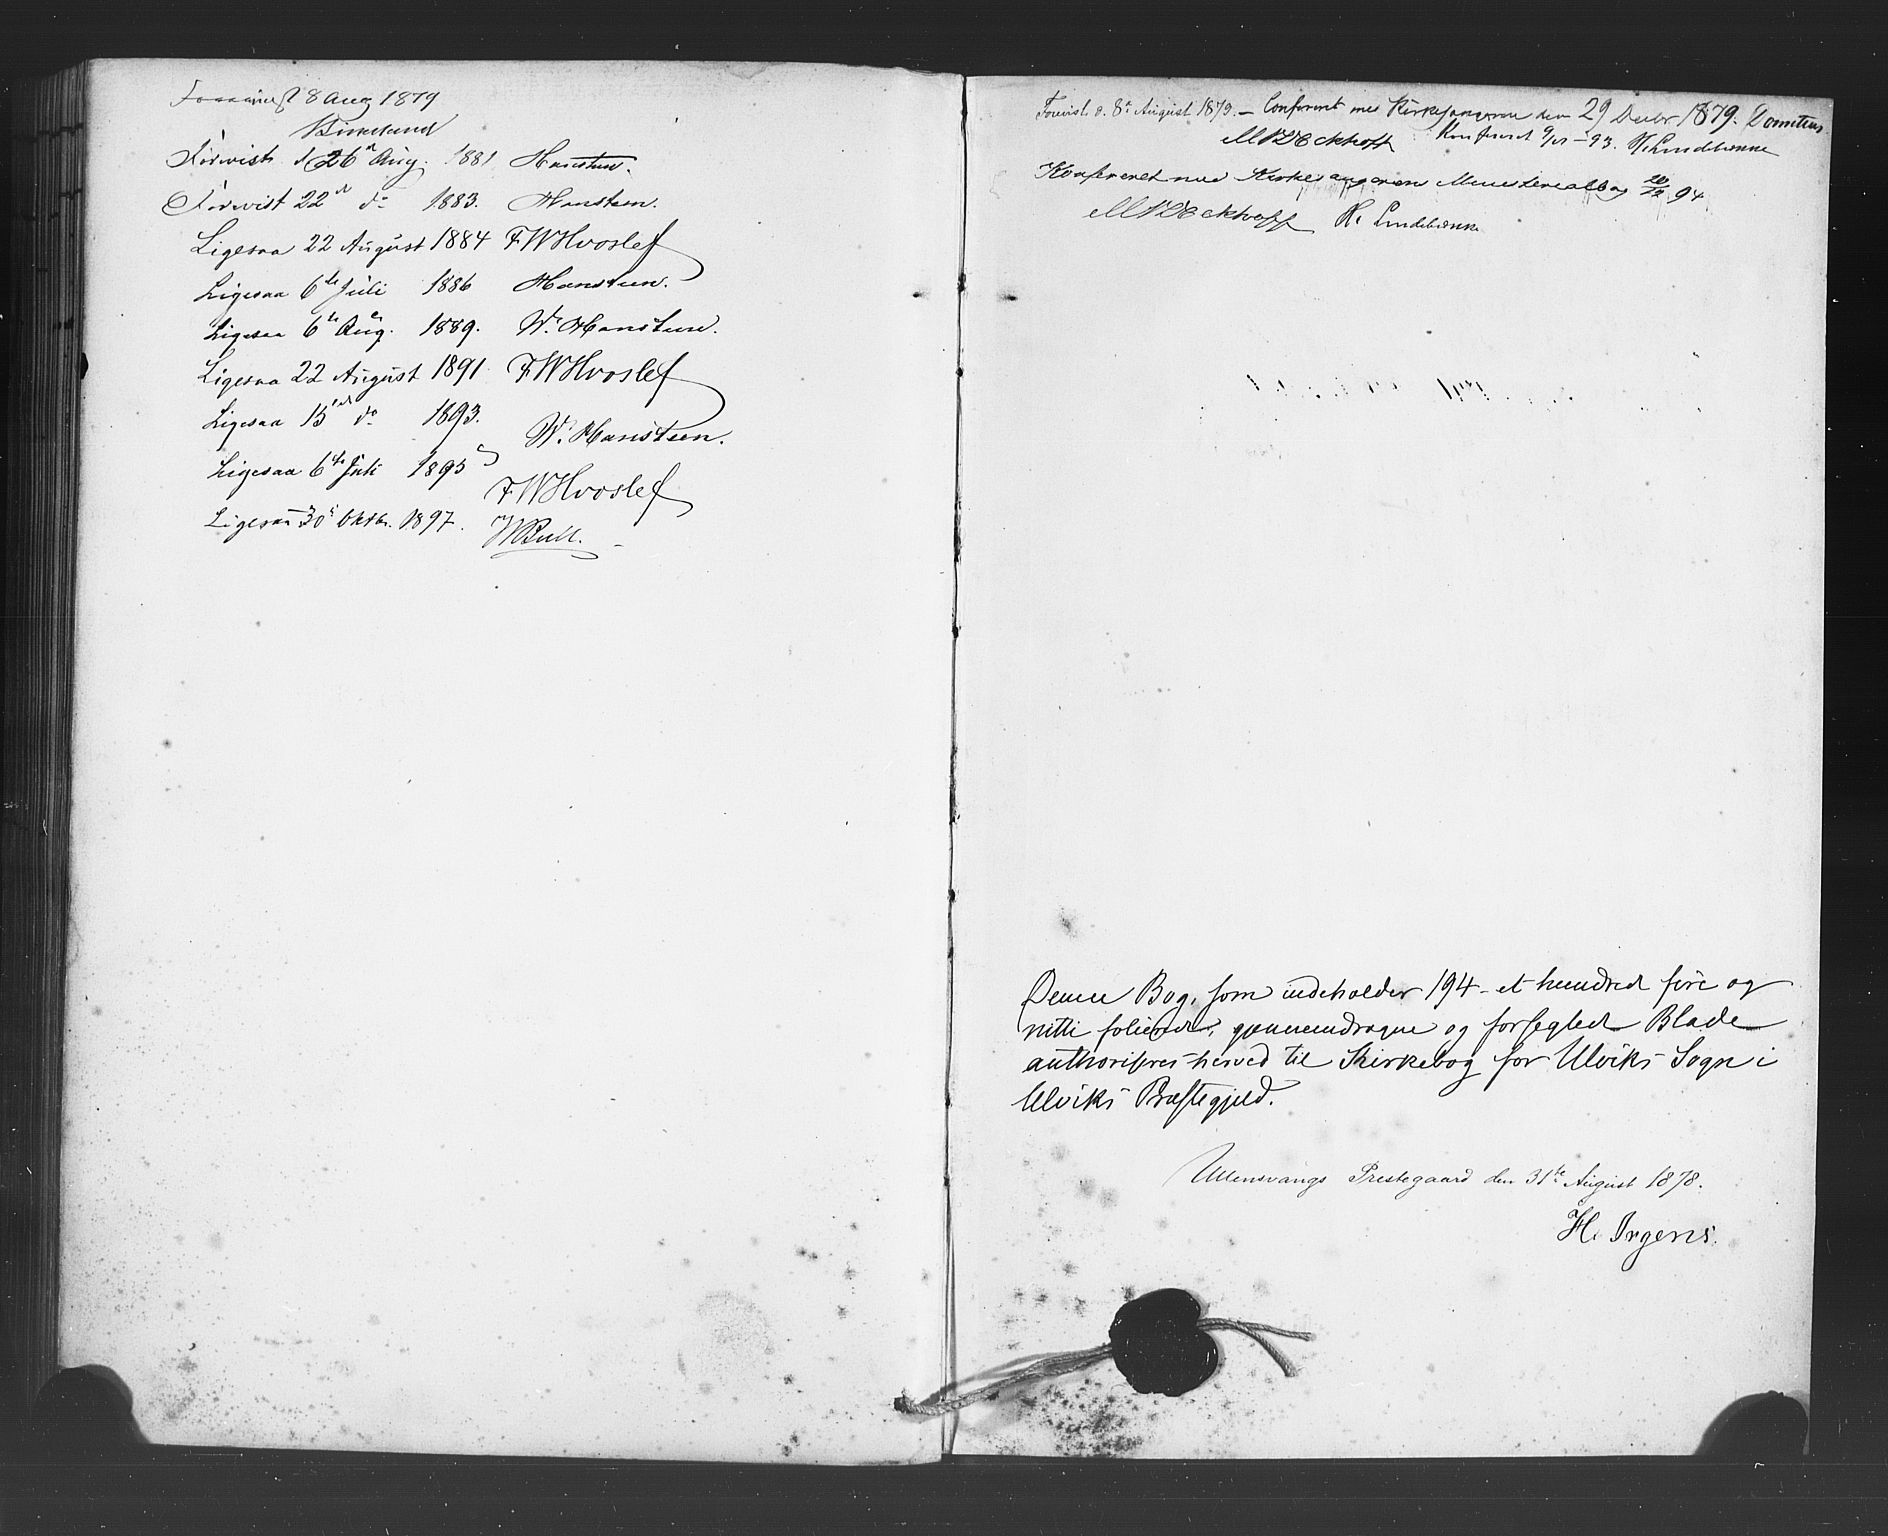 8 Aug 1879
Birkeland
Forevist d 26de Aug. 1881 Hansteen.
Forevist 22de do 1883. Hansteen.
Ligesaa 22 August 1884 FWHvoslef
Ligesaa 6te Juli 1886 Hansteen.
Ligesaa 6te Aug. 1889. W. Hansteen.
Ligesaa 22 August 1891 FWHvoslef
Ligesaa 15de do 1893. W. Hansteen.
Ligesaa 6te Juli 1895 FWHvoslef
Ligesaa 30te Oktbr. 1897. Bull.
Forevist d. 8de August 1879. – Confereret med Kirkesangeren den 29 Decbr 1879.
Eckhoff Konfereret – 93. H. Lindebrække
Konfereret med Kirkesangerens Ministerialbog 94
Eckhoff H. Lindebrække
Denne Bog, som indeholder 194 – et hundred fire og
nitti folierede, gjennemdragne og forseglede Blade
authoriseres herved til Kirkebog for Ulviks Sogn i
Ulviks Præstegjeld.
Ullensvangs Prestegaard den 31te August 1878.
H. Irgens.